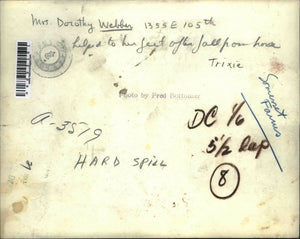 Mrs. Dorothy Webber 1355 E 105th
helped to her feet after fall from horse
Trixie
Somerset
Farms
Photo by Fred Bottomer
DC 1/6
A-3519
5 1/2 Cap
HARD SPILL
8